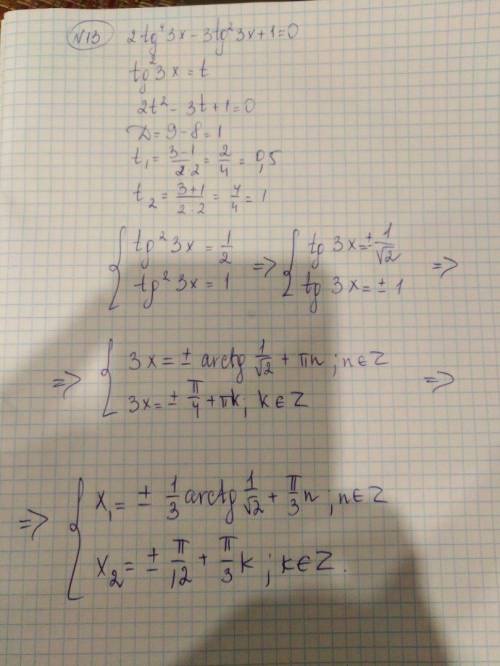 N13 2tg⁴3x - 3tg²3x + 1 = 0
tg²3x = t
2t² - 3t + 1 = 0
D = 9 - 8 = 1
t₁ = (3-1)/(2·2) = 2/4 = 0,5
t₂ = (3+1)/(2·2) = 4/4 = 1
{ tg²3x = 1/2 => { tg3x = ± 1/√2 =>
tg²3x = 1 tg3x = ± 1
=> { 3x = ± arctg 1/√2 + πn ; n∈Z =>
3x = ± π/4 + πk, k∈Z
=> { x₁ = ± 1/3 arctg 1/√2 + π/3 n ; n∈Z
x₂ = ± π/12 + π/3 k ; k∈Z.